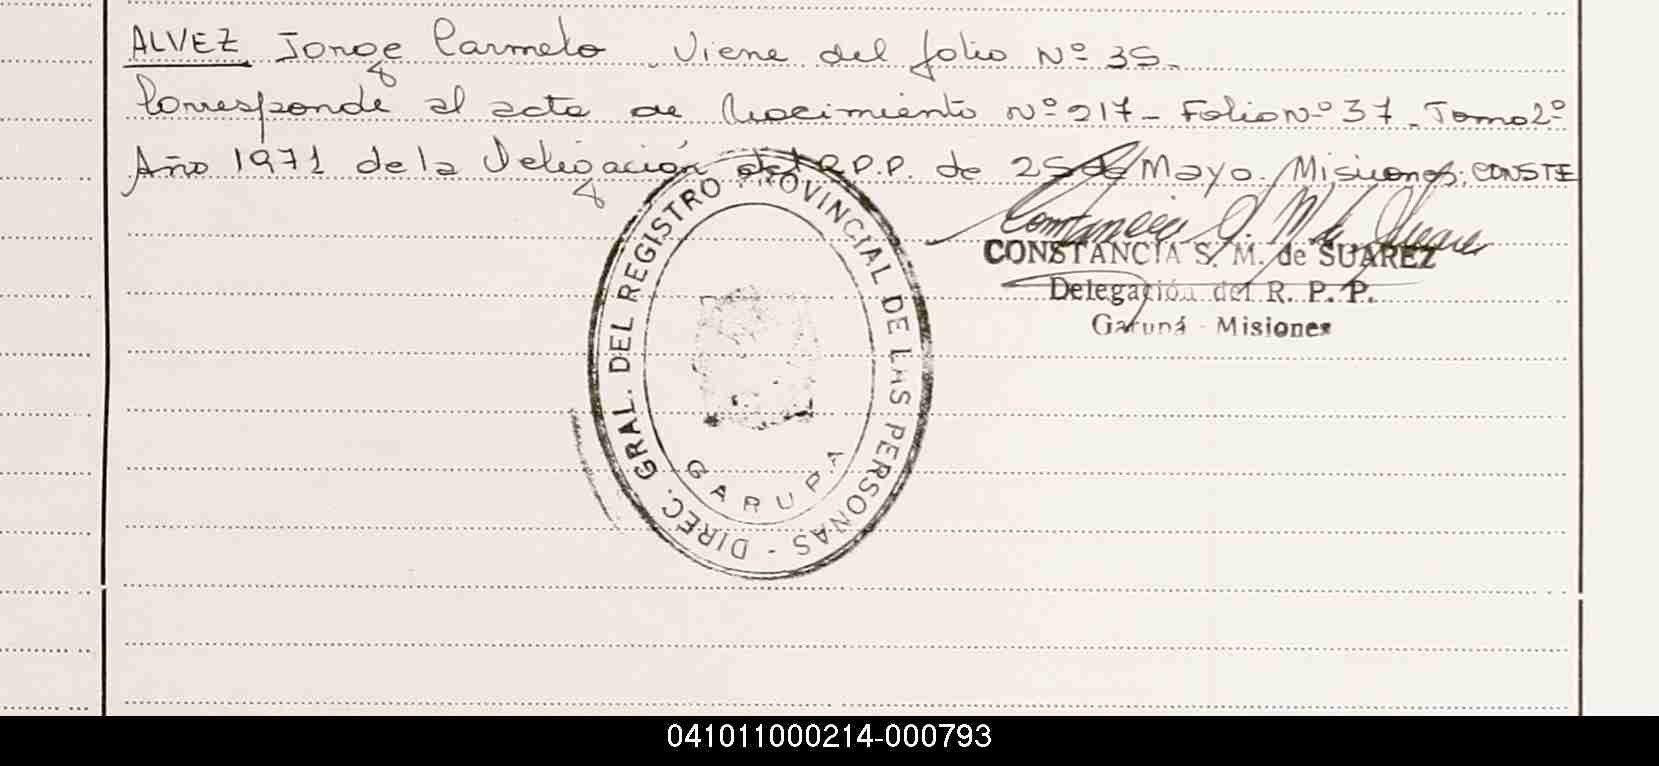 ALVEZ Jorge Carmelo. Viene del folio Nº 35.
Corresponde al acta de Nacimiento Nº 217 - Folio Nº 37 - Tomo 2º
Año 1971 de la Delegación del R.P.P. de 25 de Mayo. Misiones. CONSTE
CONSTANCIA S. M. de SUAREZ
Delegación del R. P. P.
Garupá - Misiones
DIREC. GRAL. DEL REGISTRO PROVINCIAL DE LAS PERSONAS -
GARUPA
041011000214-000793